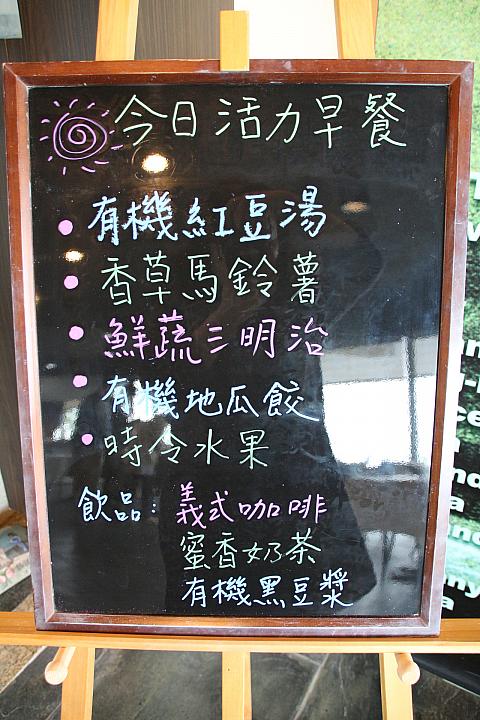 今日活力早餐
有機紅豆湯
香草馬鈴薯
鮮蔬三明治
有機地瓜餃
時令水果
飲品：義式咖啡
蜜香奶茶
有機黑豆漿